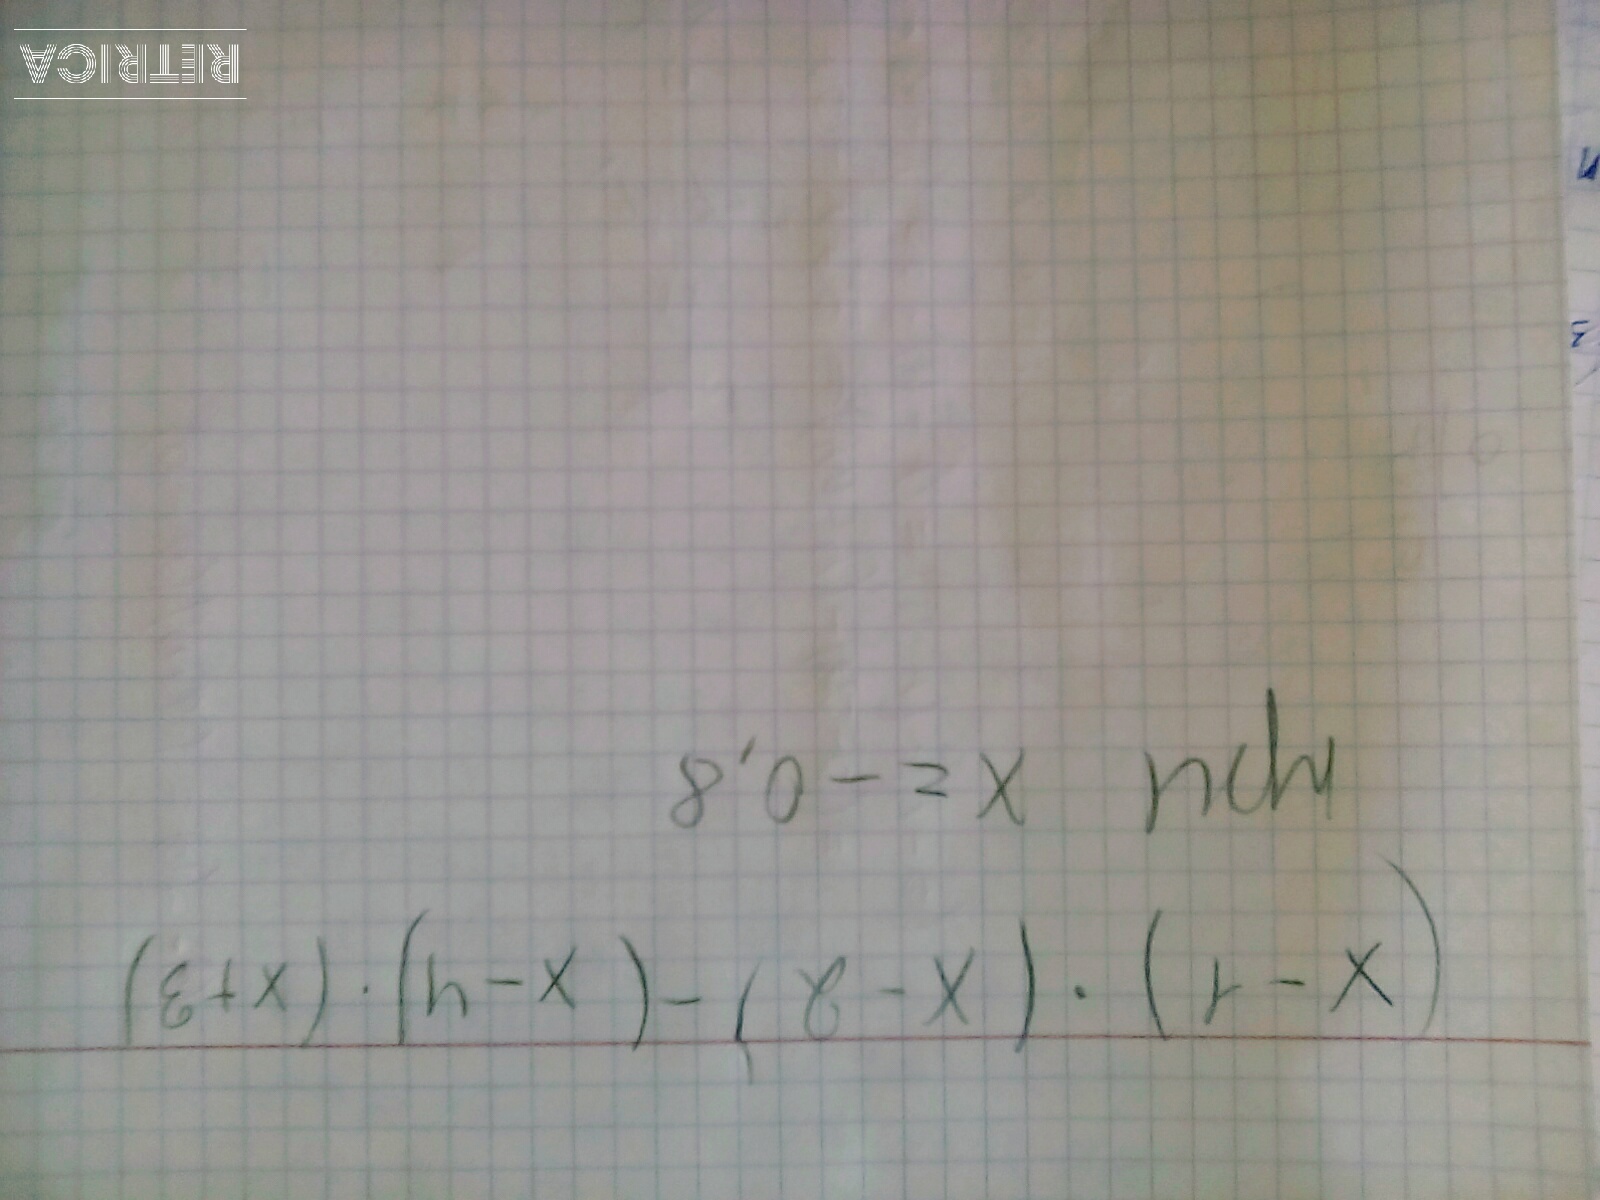 (x-1)·(x-2)-(x-4)·(x+3)
при x=-0,8
RETRICA